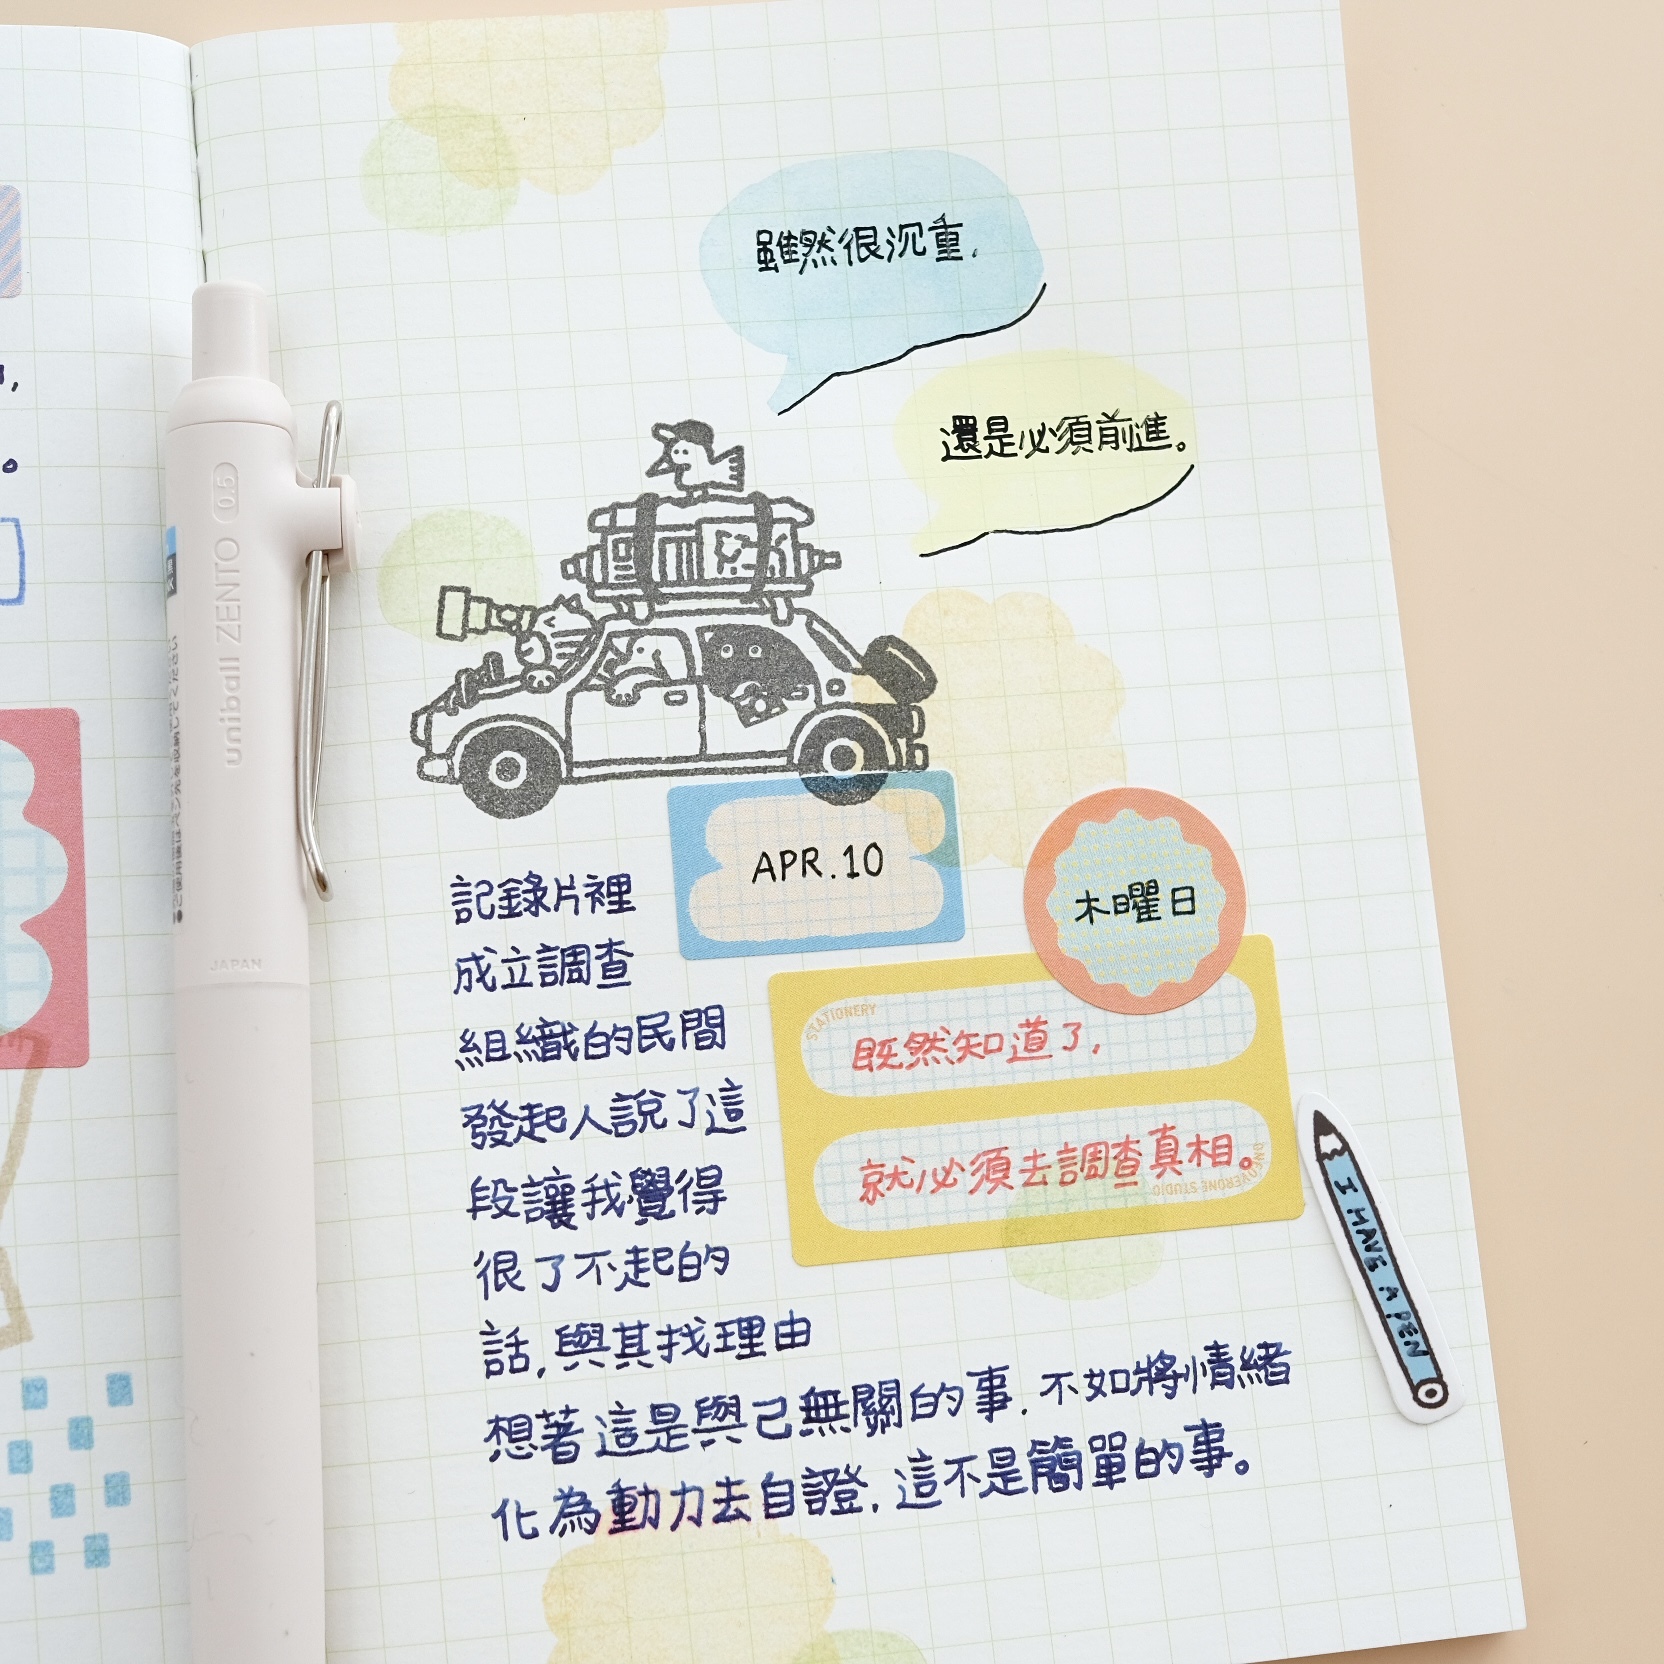 雖然很沉重,
還是必須前進。
APR.10
木曜日
STATIONERY
既然知道了,
就必須去調查真相。
記錄片裡
成立調查
組織的民間
發起人說了這
段讓我覺得
很了不起的
話,與其找理由
想著這是與己無關的事,不如將情緒
化為動力去自證,這不是簡單的事。
I HAVE A PEN
uniball ZENTO 0.5
JAPAN